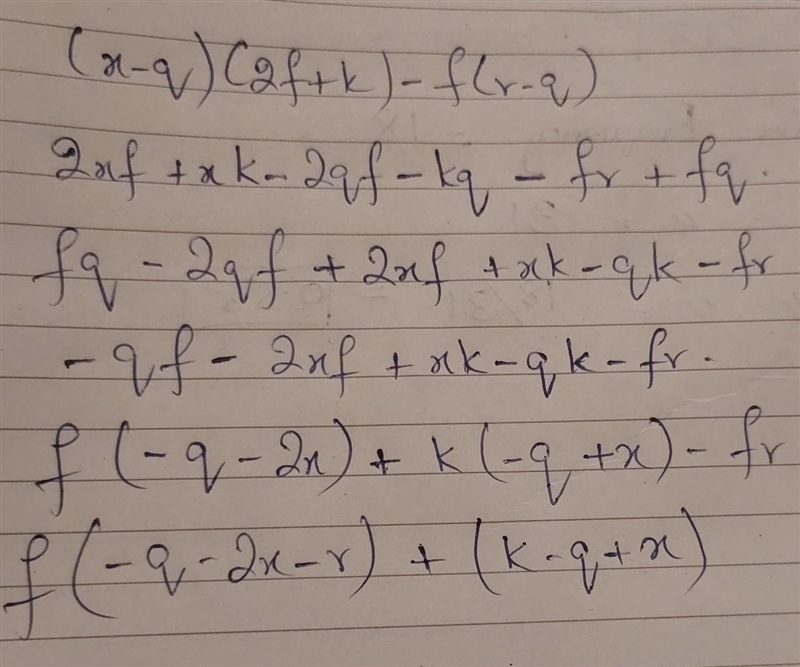 (x-q)(2f+k)-f(r-q)
2xf+xk-2qf-kq-fr+fq.
fq-2qf+2xf+xk-qk-fr
-qf-2xf+xk-qk-fr.
f(-q-2x)+k(-q+x)-fr
f(-q-2x-r)+(k-q+x)